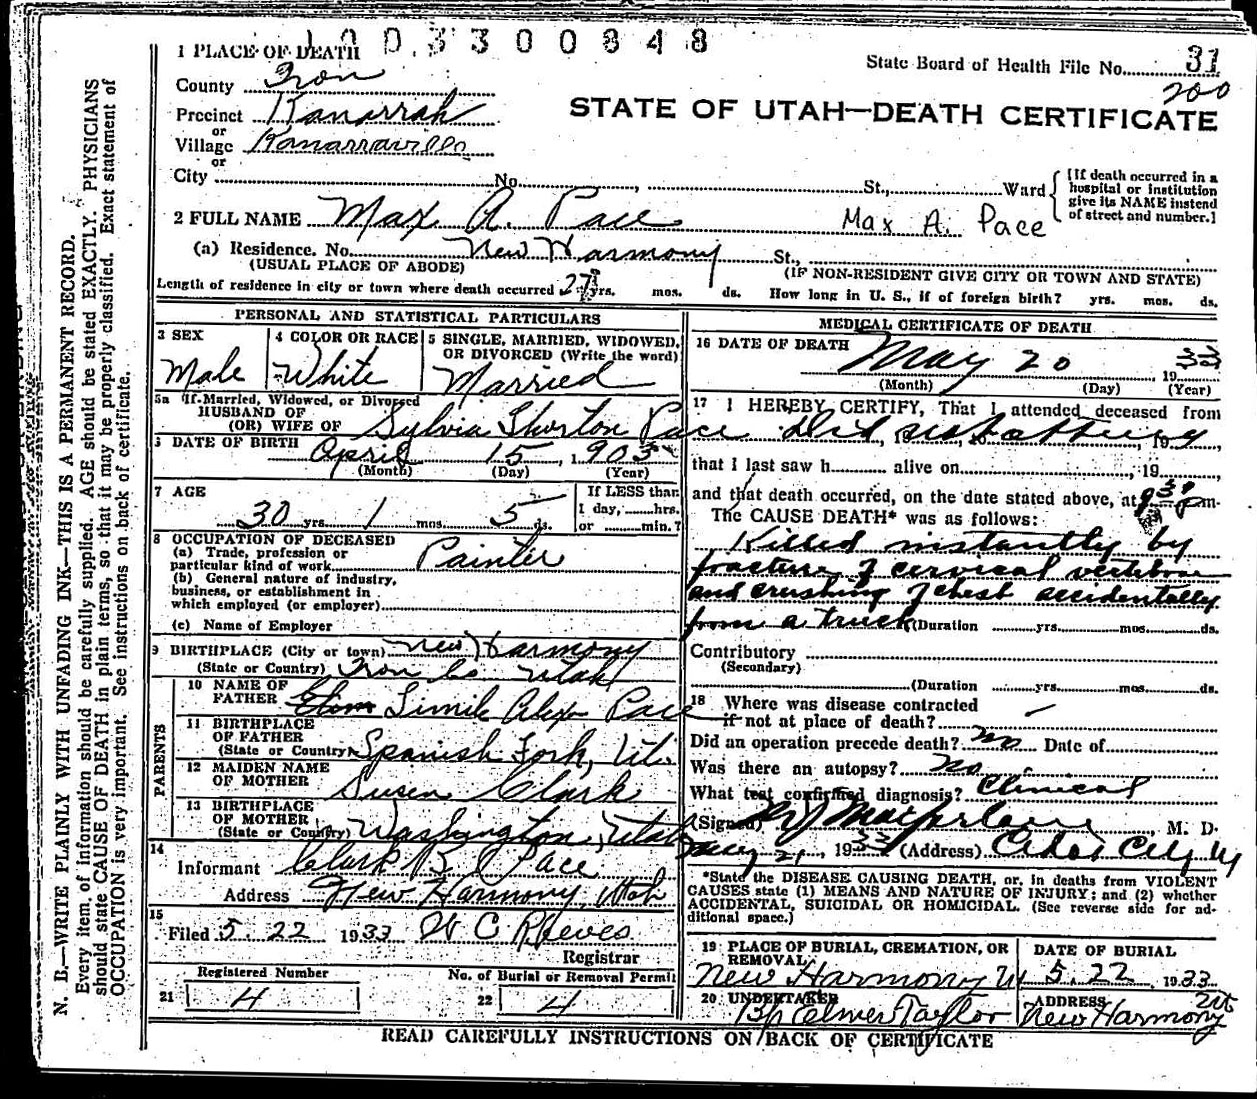 1 0 D 3 3 0 0 8 4 8
1 PLACE OF DEATH
State Board of Health File No. 31
200
County Iron
STATE OF UTAH—DEATH CERTIFICATE
Precinct Kanarrah
or
Village Kanarraville
or
City No. , St., Ward
[If death occurred in a
hospital or institution
give its NAME instead
of street and number.]
2 FULL NAME Max A. Pace Max A. Pace
(a) Residence. No. New Harmony St.,
(USUAL PLACE OF ABODE) (IF NON-RESIDENT GIVE CITY OR TOWN AND STATE)
Length of residence in city or town where death occurred yrs. mos. ds. How long in U. S., if of foreign birth? yrs. mos. ds.
PERSONAL AND STATISTICAL PARTICULARS
3 SEX
Male
4 COLOR OR RACE
White
5 SINGLE, MARRIED, WIDOWED,
OR DIVORCED (Write the word)
Married
5a If Married, Widowed, or Divorced
HUSBAND OF
(OR) WIFE OF Sylvia Thorton Pace
6 DATE OF BIRTH April 15, 1903
(Month) (Day) (Year)
7 AGE
30 yrs. 1 mos. 5 ds.
If LESS than
1 day, hrs.
or min.?
8 OCCUPATION OF DECEASED
(a) Trade, profession or
particular kind of work Painter
(b) General nature of industry,
business, or establishment in
which employed (or employer)
(c) Name of Employer
9 BIRTHPLACE (City or town) New Harmony
(State or Country) Iron Co Utah
PARENTS
10 NAME OF
FATHER Limile Alex Pace
11 BIRTHPLACE
OF FATHER
(State or Country) Spanish Fork, Ut.
12 MAIDEN NAME
OF MOTHER Susen Clark
13 BIRTHPLACE
OF MOTHER
(State or Country) Washington, Utah
14
Informant Clark B. Pace
Address New Harmony, Utah
15
Filed 5. 22 1933 W C Reeves
Registrar
Registered Number No. of Burial or Removal Permit
21 4 22 4
MEDICAL CERTIFICATE OF DEATH
16 DATE OF DEATH May 20, 1933
(Month) (Day) (Year)
17 I HEREBY CERTIFY, That I attended deceased from
Did not attend , 19
that I last saw h alive on , 19
and that death occurred, on the date stated above, at 9 30 pm.
The CAUSE DEATH* was as follows:
Killed instantly by
fracture of cervical vertebrae
and crushing of chest accidentally
from a truck (Duration yrs. mos. ds.
Contributory
(Secondary)
(Duration yrs. mos. ds.
18 Where was disease contracted
if not at place of death? —
Did an operation precede death? no Date of
Was there an autopsy? no
What test confirmed diagnosis? Clinical
(Signed) Macfarlane, M. D.
May 21, 1933 (Address) Cedar City U
*State the DISEASE CAUSING DEATH, or, in deaths from VIOLENT
CAUSES state (1) MEANS AND NATURE OF INJURY; and (2) whether
ACCIDENTAL, SUICIDAL OR HOMICIDAL. (See reverse side for ad-
ditional space.)
19 PLACE OF BURIAL, CREMATION, OR
REMOVAL
New Harmony U
DATE OF BURIAL
5. 22, 1933
20 UNDERTAKER
Bp Elmer Taylor
ADDRESS
New Harmony Ut
READ CAREFULLY INSTRUCTIONS ON BACK OF CERTIFICATE
N. B.—WRITE PLAINLY WITH UNFADING INK—THIS IS A PERMANENT RECORD.
Every item of information should be carefully supplied. AGE should be stated EXACTLY. PHYSICIANS
should state CAUSE OF DEATH in plain terms, so that it may be properly classified. Exact statement of
OCCUPATION is very important. See instructions on back of certificate.